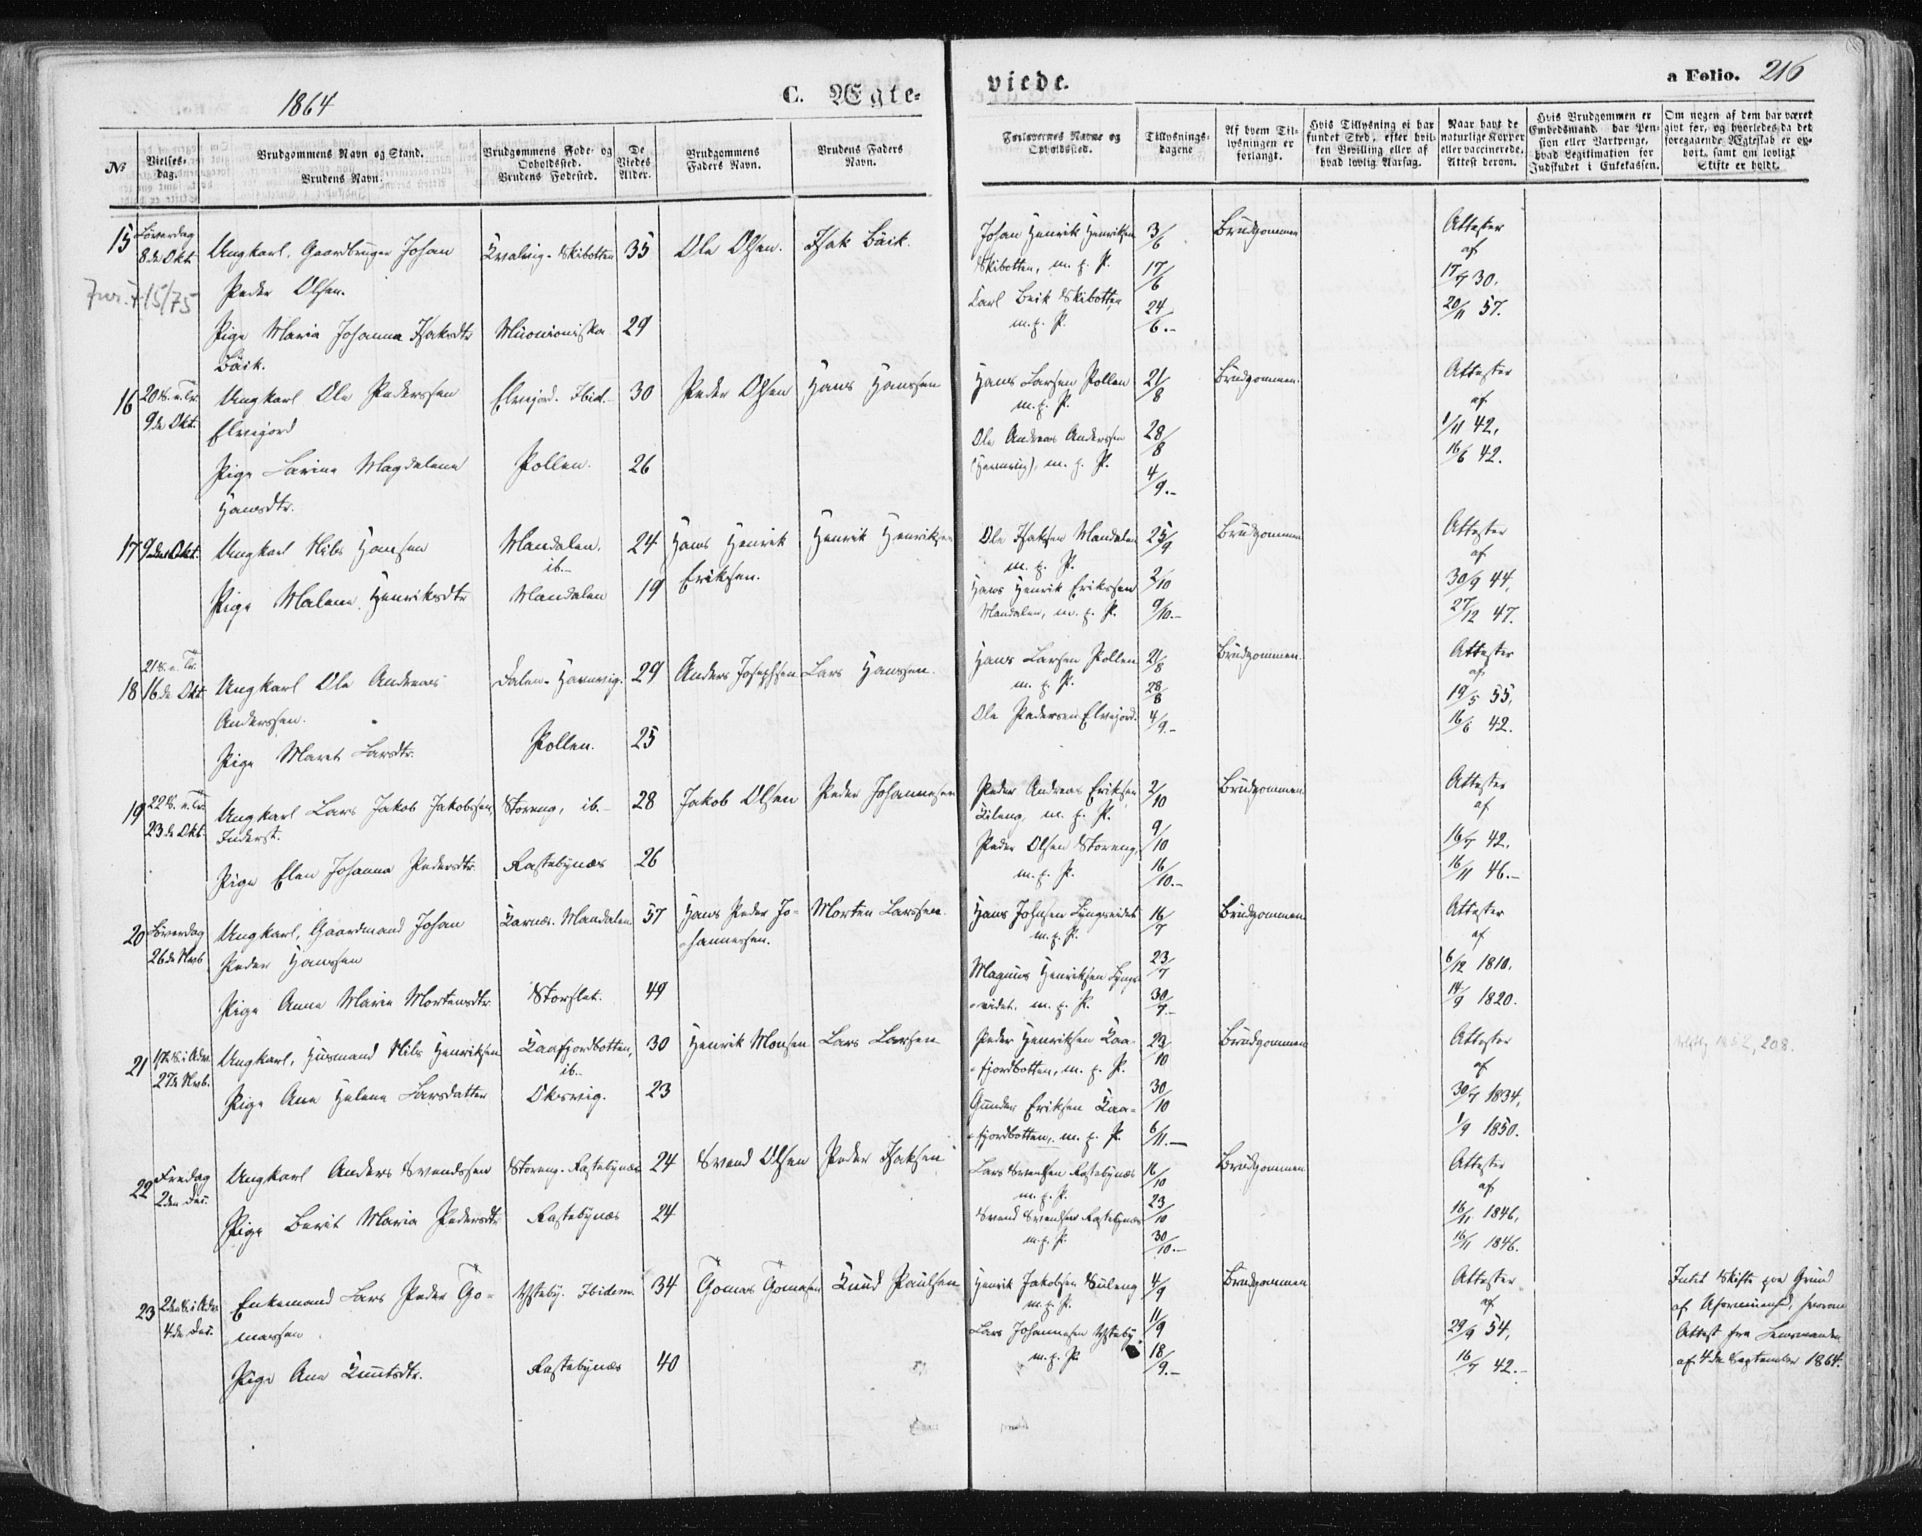 1864
C. Ægte-
viede.
a Folio. 216
No
Vielses-dag.
Brudgommens Navn og Stand.
Brudens Navn.
Brudgommens Føde- og Opholdssted.
Brudens Fødested.
De Viedes Alder.
Brudgommens Faders Navn.
Brudens Faders Navn.
Forlovernes Navne og Opholdssted.
Tillysnings-dagene
Af hvem Tillysningen er forlangt.
Hvis Tillysning ei har fundet Sted, efter hvilken Bevilling eller af hvad lovlig Aarsag.
Naar havt de naturlige Kopper eller vaccinerede. Attest derom.
Hvis Brudgommen er Embedsmand, har Pension eller Vartpenge, hvad Legitimation for Indskudet i Enkekassen.
Om nogen af dem har været givt før, og hvorledes da det foregaaende Ægteskab er ophørt, samt om lovligt Skifte er holdt.
15 Løverdag 8de Okt. Ungkarl, Gaardbruger Johan Kvalvig - Skibotten 35 Ole Olsen. Isak Bäik. Johan Henrik Henriksen 3/6 Brudgommen Attester
Peder Olsen. Skibotten, m. f. P. 17/6 af 17/7 30.
15/75
Carl Beik Skibotten 24/6.- 20/11 57.
m. f. P.
Pige Maria Johanna Isaksdtr Muonioniska 29
Bäik.
16 20 S. e. Tr. 9de Okt. Ungkarl Ole Pederssen Elvejord. Ibid.- 30 Peder Olsen Hans Hanssen Hans Larsen Pollen 21/8 Brudgommen. Attester
Elvejord m. f. P. af
Ole Andreas Anderssen 28/8 1/11 42,
Pige Larina Magdalena Pollen. 26 (Havnvig), m. f. P. 4/9.- 16/6 42.
Hansdtr.
17 9de Okt. Ungkarl Nils Hansen Mandalen, ib.- 24 Hans Henrik Eriksen. Henrik Henriksen Ole Isaksen Mandalen 25/9 Brudgommen Attester
m. f. P. af
Pige Malene Henriksdtr Mandalen 19 Hans Henrik Erikssen 2/10 30/9 44,
Mandalen, m. f. P. 9/10.- 27/12 47.
18 21 S. e. Tr. 16de Okt Ungkarl Ole Andreas Dalen - Havnvig. 29 Anders Josephsen Lars Hanssen. Hans Larsen Pollen 21/8 Brudgommen. Attester
Anderssen. m. f. P. 28/8 af 19/5 55,
Ole Pedersen Elvejord. 4/9.- 16/6 42.
Pige Maret Larsdtr. Pollen. 25
19 22 S. e. Tr. 23de Okt. Ungkarl Lars Jakob Jakobssen, Storeng, ib.- 28 Jakob Olsen Peder Johannesen Peder Andreas Eriksen 2/10 Brudgommen Attester
Inderst. Kileng, m. f. P. 9/10 af
Peder Olsen Storeng, 16/7 42,
Pige Elen Johanna Pedersdtr. Rastebynæs 26 m. f. P. 16/10.- 16/11 46.-
20 Løverdag 26de Novb Ungkarl, Gaardmand Johan Karnæs. Mandalen 57 Hans Peder Jo- Morten Larssen. Hans Johnsen Lyngseidet 16/7 Brudgommen Attester
Peder Hanssen hannessen. m. f. P. 23/7 af 6/12 1810.
Magnus Henriksen Lyngs-
Pige Anna Maria Mortensdtr Storslet. 49 eidet. m. f. P. 30/7.- 14/9 1820.
21 1ste S. i Adv. 27de Novb. Ungkarl, Husmand Nils Henriksen Kaafjordbotten, ib.- 30 Henrik Monsen Lars Larsen Peder Henriksen Kaa- 23/10 Brudgommen Attester
fjordbotten, m. f. P. af
Pige Ane Helene Larsdatter Oksvig. 23 Gunder Eriksen Kaa- 30/10 30/7 1834,
fjordbotten, m. f. P. 6/11.- 1/9 1850.
1852, 208.
22 Fredag 2den Dec. Ungkarl Anders Svendssen Storeng - Rastebynæs 24 Svend Olsen Peder Isaksen Lars Svendsen Rastebynæs 16/10 Brudgommen Attester
m. f. P. 23/10 af
Pige Berit Maria Pedersdtr Rastebynæs 24 Svend Svendsen Rastebynæs 16/11 1846,
m. f. P. 30/10.- 16/11 1846.
23 2den S. i Adv. 4de Dec. Enkemand Lars Peder To- Ysteby. Ibidem. 34 Tomas Tomasen Knud Paulsen Henrik Jakobsen Kileng 4/9 Brudgommen Attester Intet Skifte paa Grund
massen m. f. P. 11/9 af af Uformuenhed, hvorom
Lars Johannesen Ysteby 29/9 54, Attest fra Lensmanden
Pige Ane Knutsdtr. Rastebynæs 40 m. f. P. 18/9.- 16/7 42.- af 4de September 1864.